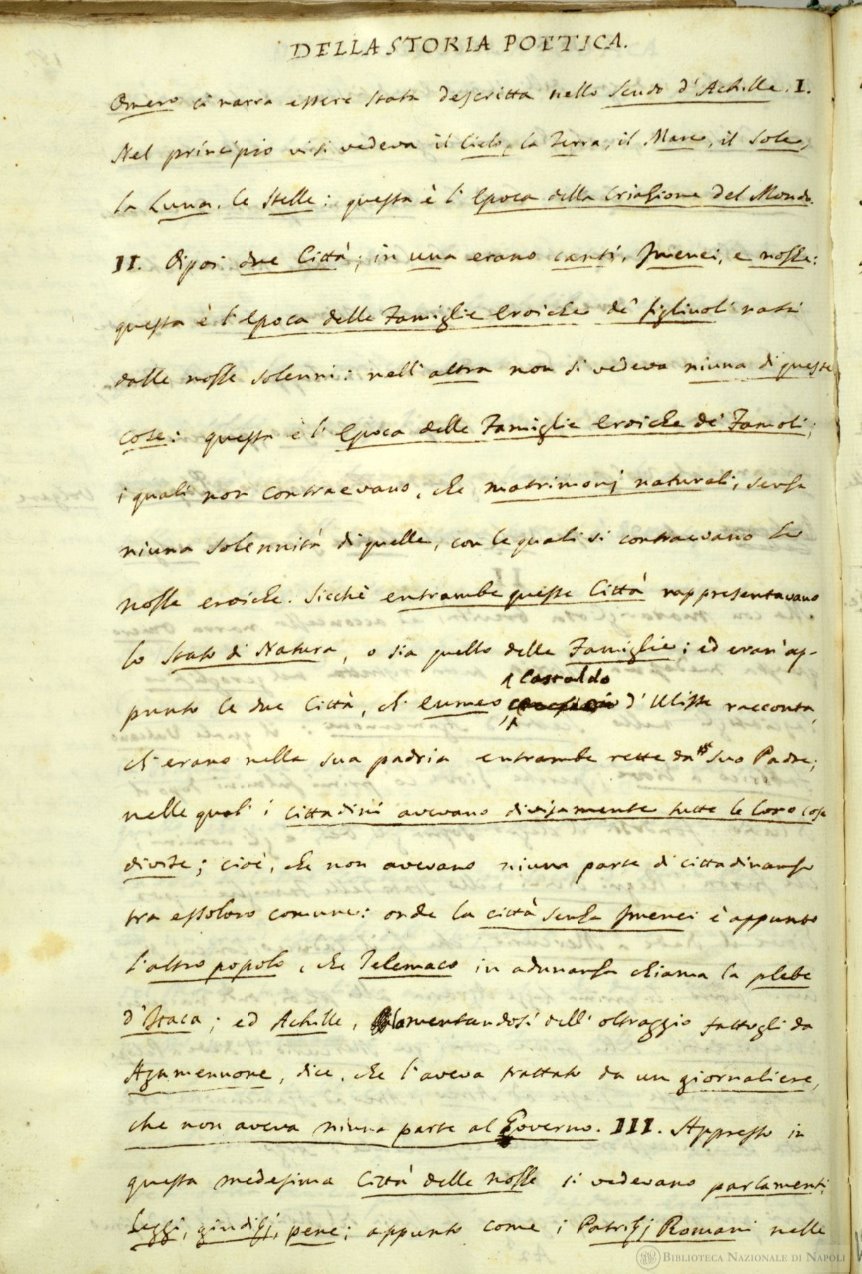 DELLA STORIA POETICA.
Omero ci narra essere stata descritta nello Scudo d'Achille. I.
Nel principio vi si vedeva il Cielo, la Terra, il Mare, il Sole,
la Luna, le Stelle: questa è l'Epoca della Criazione del Mondo.
II. Dipoi due Città; in una erano canti, Imenei, e nozze:
questa è l'Epoca delle Famiglie Eroiche de' figliuoli nati
dalle nozze solenni: nell'altra non si vedeva niuna di queste
cose: questa è l'Epoca delle Famiglie Eroiche de' Famoli,
i quali non contraevano, che matrimonj naturali, senza
niuna solennità di quelle, con le quali si contraevano le
nozze eroiche. Sicchè entrambe queste Città rappresentavano
lo Stato di Natura, o sia quello delle Famiglie; ed eran ap-
Castaldo
punto le due Città, ch'Eumeo d'Ulisse racconta,
ch'erano nella sua padria entrambe rette da suo Padre;
nelle quali i cittadini avevano divisamente tutte le loro cose
divise; cioè, che non avevano niuna parte di cittadinanza
tra essoloro comune: onde la città senza Imenei è appunto
l'altro popolo, che Telemaco in adunanza chiama la plebe
d'Itaca; ed Achille, lamentandosi dell'oltraggio fattogli da
Agamennone, dice, che l'aveva trattato da un giornaliere,
che non aveva niuna parte al Governo. III. Appresso in
questa medesima Città delle nozze si vedevano parlamenti,
leggi, giudizj, pene; appunto come i Patrizj Romani nelle
BIBLIOTECA NAZIONALE DI NAPOLI